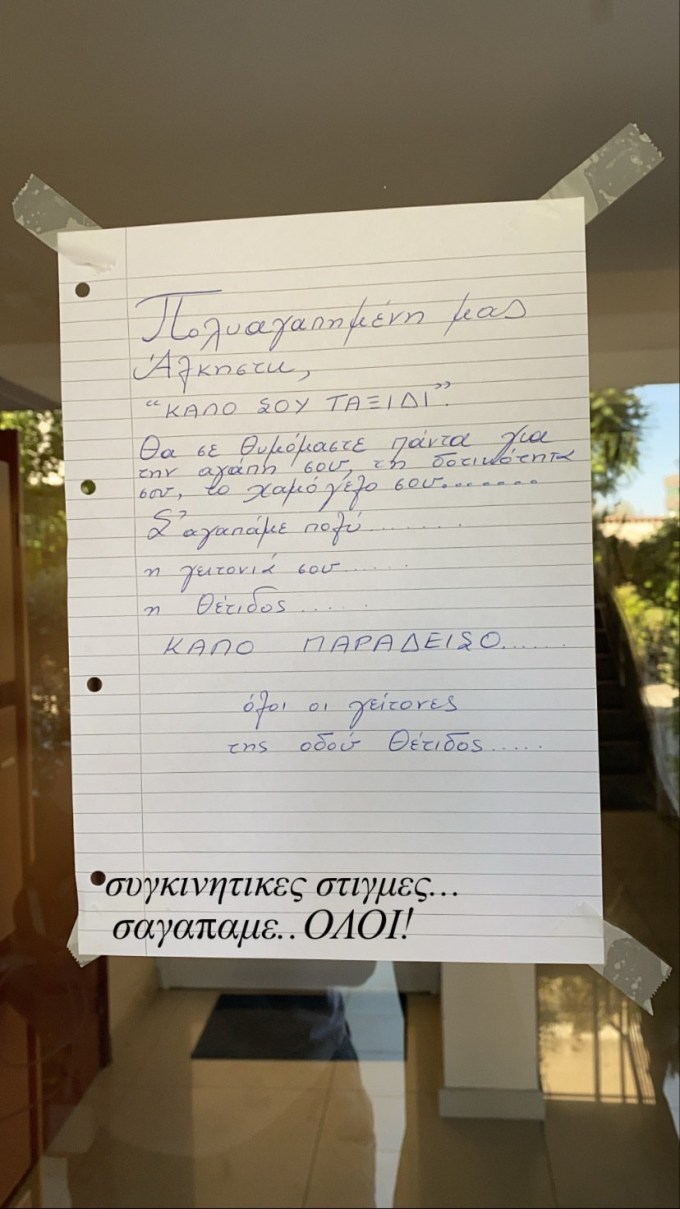 Πολυαγαπημένη μας
Άλκηστις,
"ΚΑΛΟ ΣΟΥ ΤΑΞΙΔΙ".
Θα σε θυμόμαστε πάντα για
την αγάπη σου, τη δοτικότητα
σου, το χαμόγελο σου.......
Σ'αγαπάμε πολύ.........
η γειτονιά σου......
η Θέτιδος......
ΚΑΛΟ ΠΑΡΑΔΕΙΣΟ......
όλοι οι γείτονες
της οδού Θέτιδος......
συγκινητικες στιγμες...
σαγαπαμε..ΟΛΟΙ!